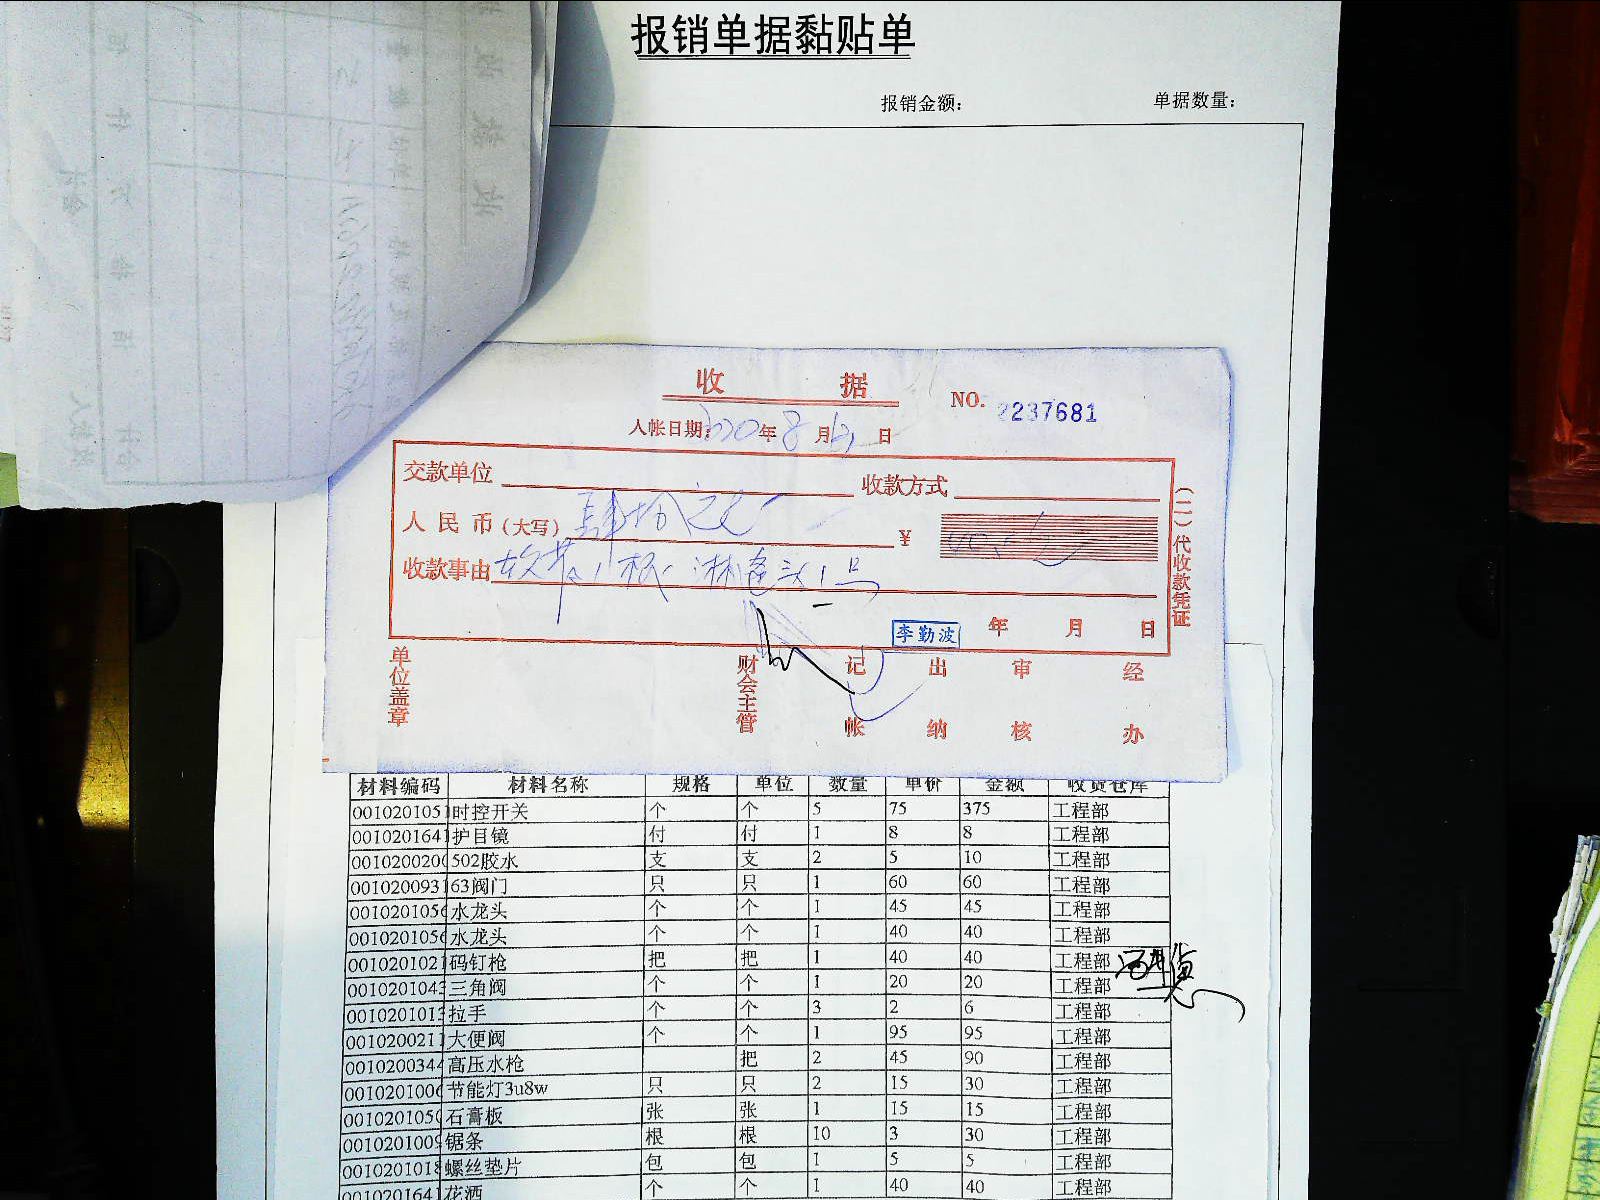 报销单据黏贴单
报销金额: 单据数量:
收 据
NO. 2237681
人帐日期: 2020年8月 日
交款单位 收款方式
人民币(大写) 肆拾元 ¥
收款事由 软管1根 淋蓬头1只
(二)代收款凭证
李勤波 年 月 日
单位盖章 财会主管 记帐 出纳 审核 经办
材料编码 材料名称 规格 单位 数量 单价 金额 收货仓库
0010201051 时控开关 个 个 5 75 375 工程部
0010201641 护目镜 付 付 1 8 8 工程部
001020020 502胶水 支 支 2 5 10 工程部
001020093 63阀门 只 只 1 60 60 工程部
001020105 水龙头 个 个 1 45 45 工程部
001020105 水龙头 个 个 1 40 40 工程部
001020102 码钉枪 把 把 1 40 40 工程部
001020104 三角阀 个 个 1 20 20 工程部
001020101 拉手 个 个 3 2 6 工程部
001020021 大便阀 个 个 1 95 95 工程部
001020034 高压水枪 把 2 45 90 工程部
001020100 节能灯3u8w 只 只 2 15 30 工程部
001020105 石膏板 张 张 1 15 15 工程部
001020100 锯条 根 根 10 3 30 工程部
001020101 螺丝垫片 包 包 1 5 5 工程部
001020164 花洒 个 个 1 40 40 工程部